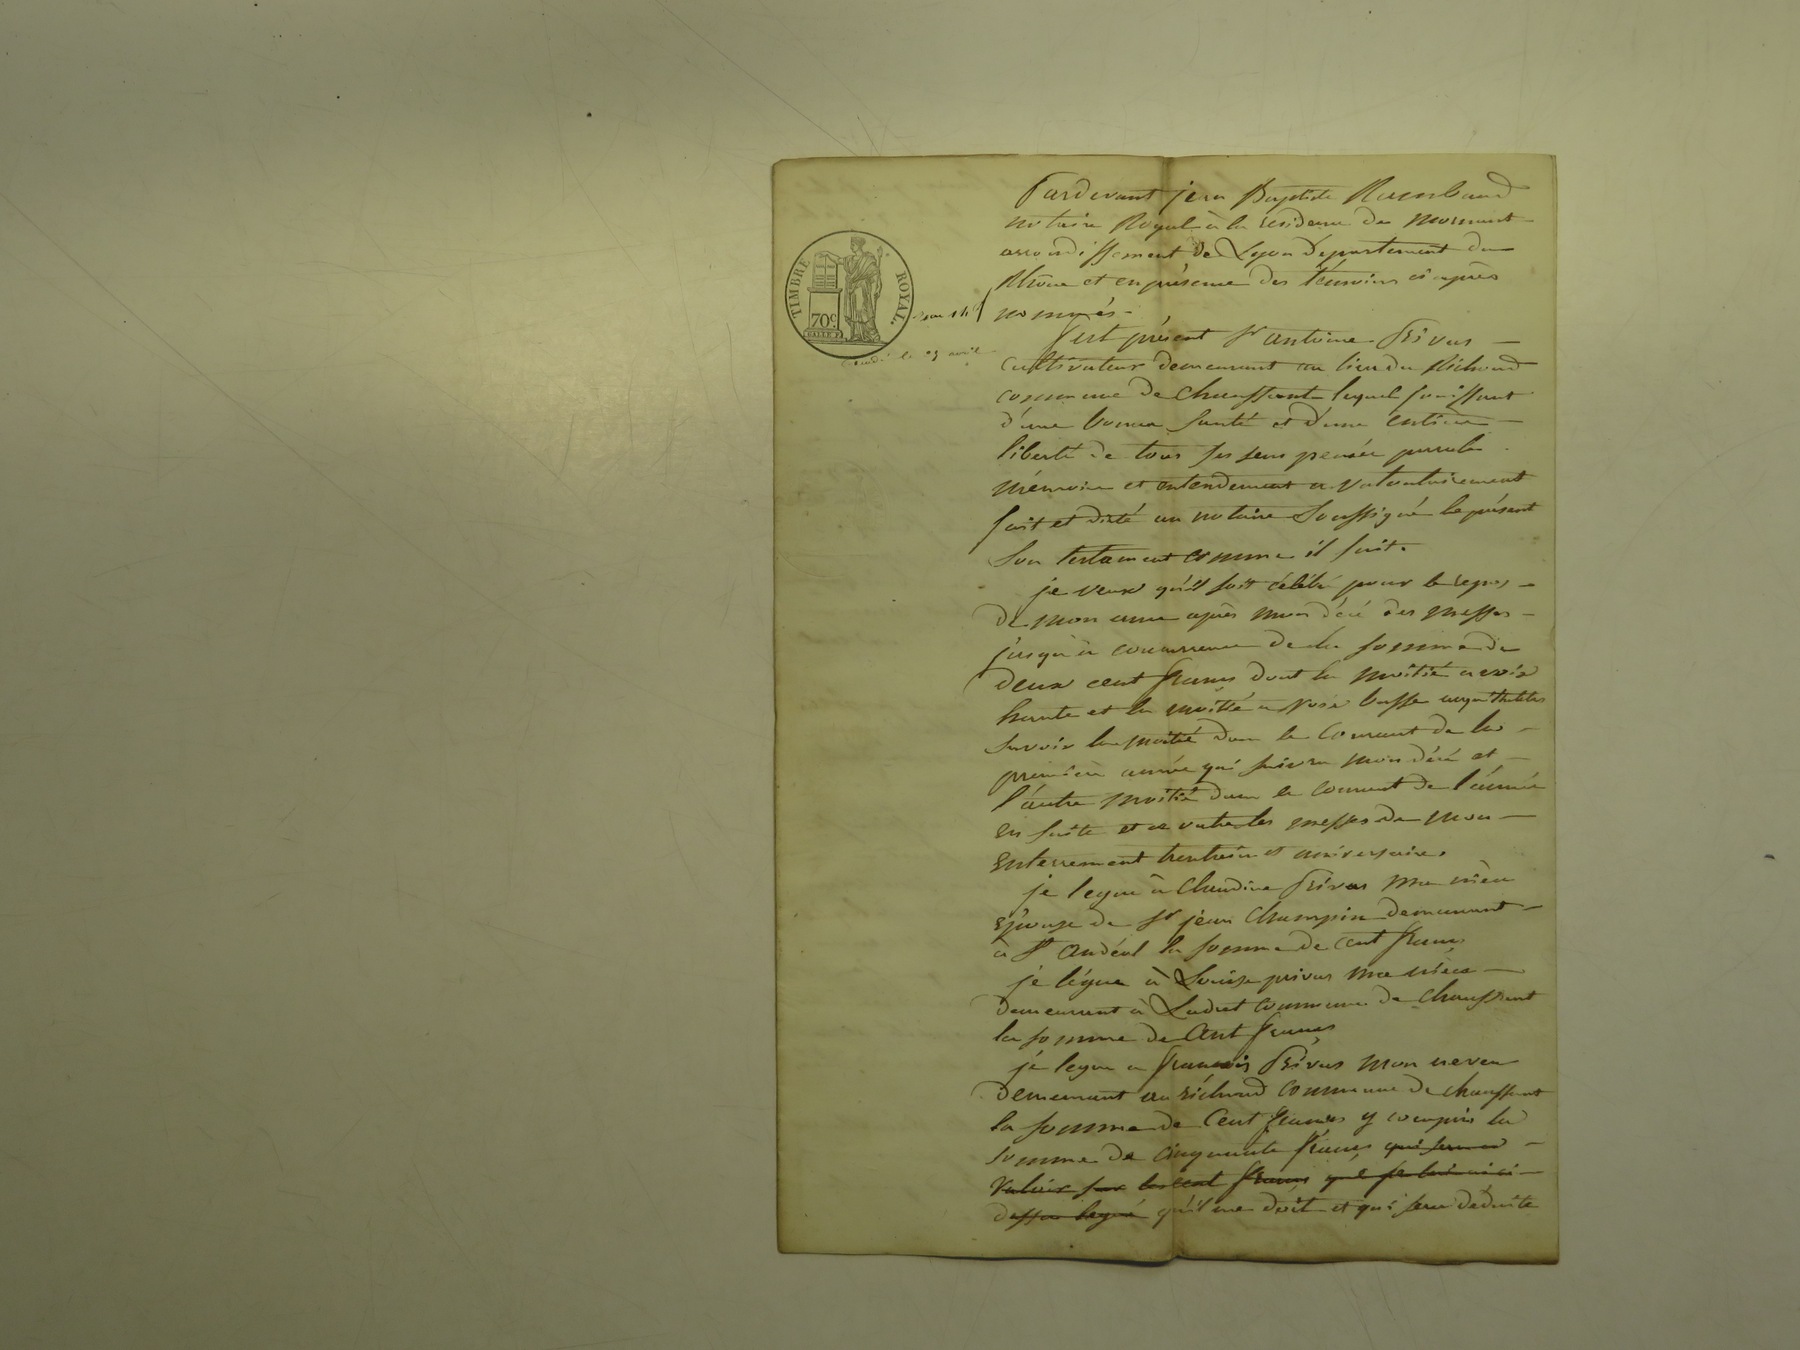 Pardevant jean Baptiste Rambaud
notaire Royal à la residence de mornant
arrondissement de Lyon Departement du
Rhone et en présence des témoins ci après
nommés.
TIMBRE ROYAL.
70c
le 25 avril
Est présent Sr antoine Privas
cultivateur demeurant au lieu du Richoud
commune de chaussant lequel jouissant
d'une bonne santé et d'une entière
liberté de tous ses sens pensée parole
mémoire et entendement a volontairement
fait et dicté au notaire soussigné le présent
son testament comme il suit.
je veux qu'il soit célébré pour le repos
de mon ame après mon décé des messes
jusqu'à concurrence de la somme de
deux cent francs dont la moitié a voix
haute et la moitié a voix basse
savoir la moitié dans le courant de la
première année qui suivra mon décé et
l'autre moitié dans le courant de l'année
en suite et ce outre les messes de mon
enterrement trentain et anniversaire.
je legue à Claudine Privas ma nièce
épouse de Sr jean Champin demeurant
à St Andéol la somme de cent francs
je légue à Louise privas ma nièce
demeurant à Ludret commune de chaussant
la somme de Cent francs
je legue a francois Privas mon neveu
demeurant au richoud commune de chaussant
la somme de Cent francs y compris la
somme de cinquante francs qui sera a
valoir sur les cent francs que je lui ai ci
dessus legué qu'il me doit et qui sera déduite